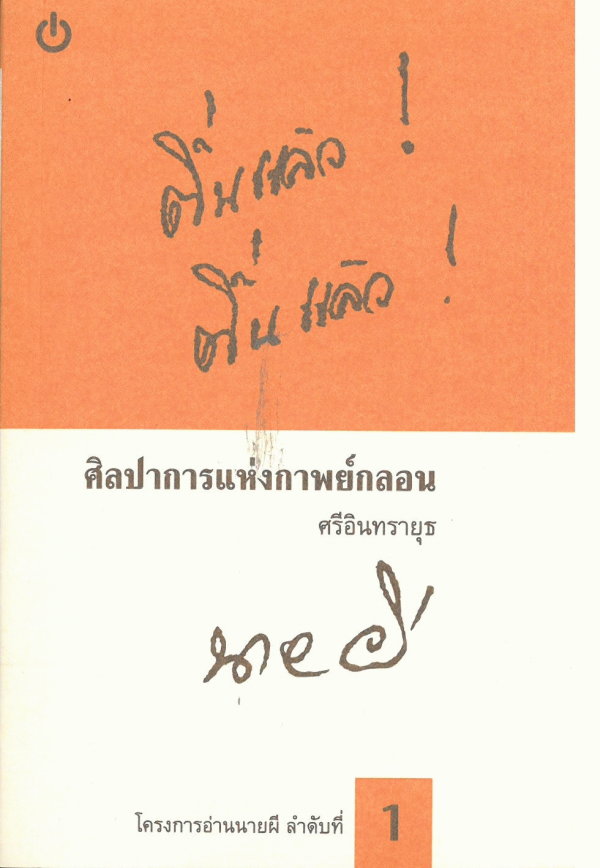 ตื่นแล้ว !
ตื่นแล้ว !
ศิลปาการแห่งกาพย์กลอน
ศรีอินทรายุธ
นายผี
โครงการอ่านนายผี ลำดับที่ 1